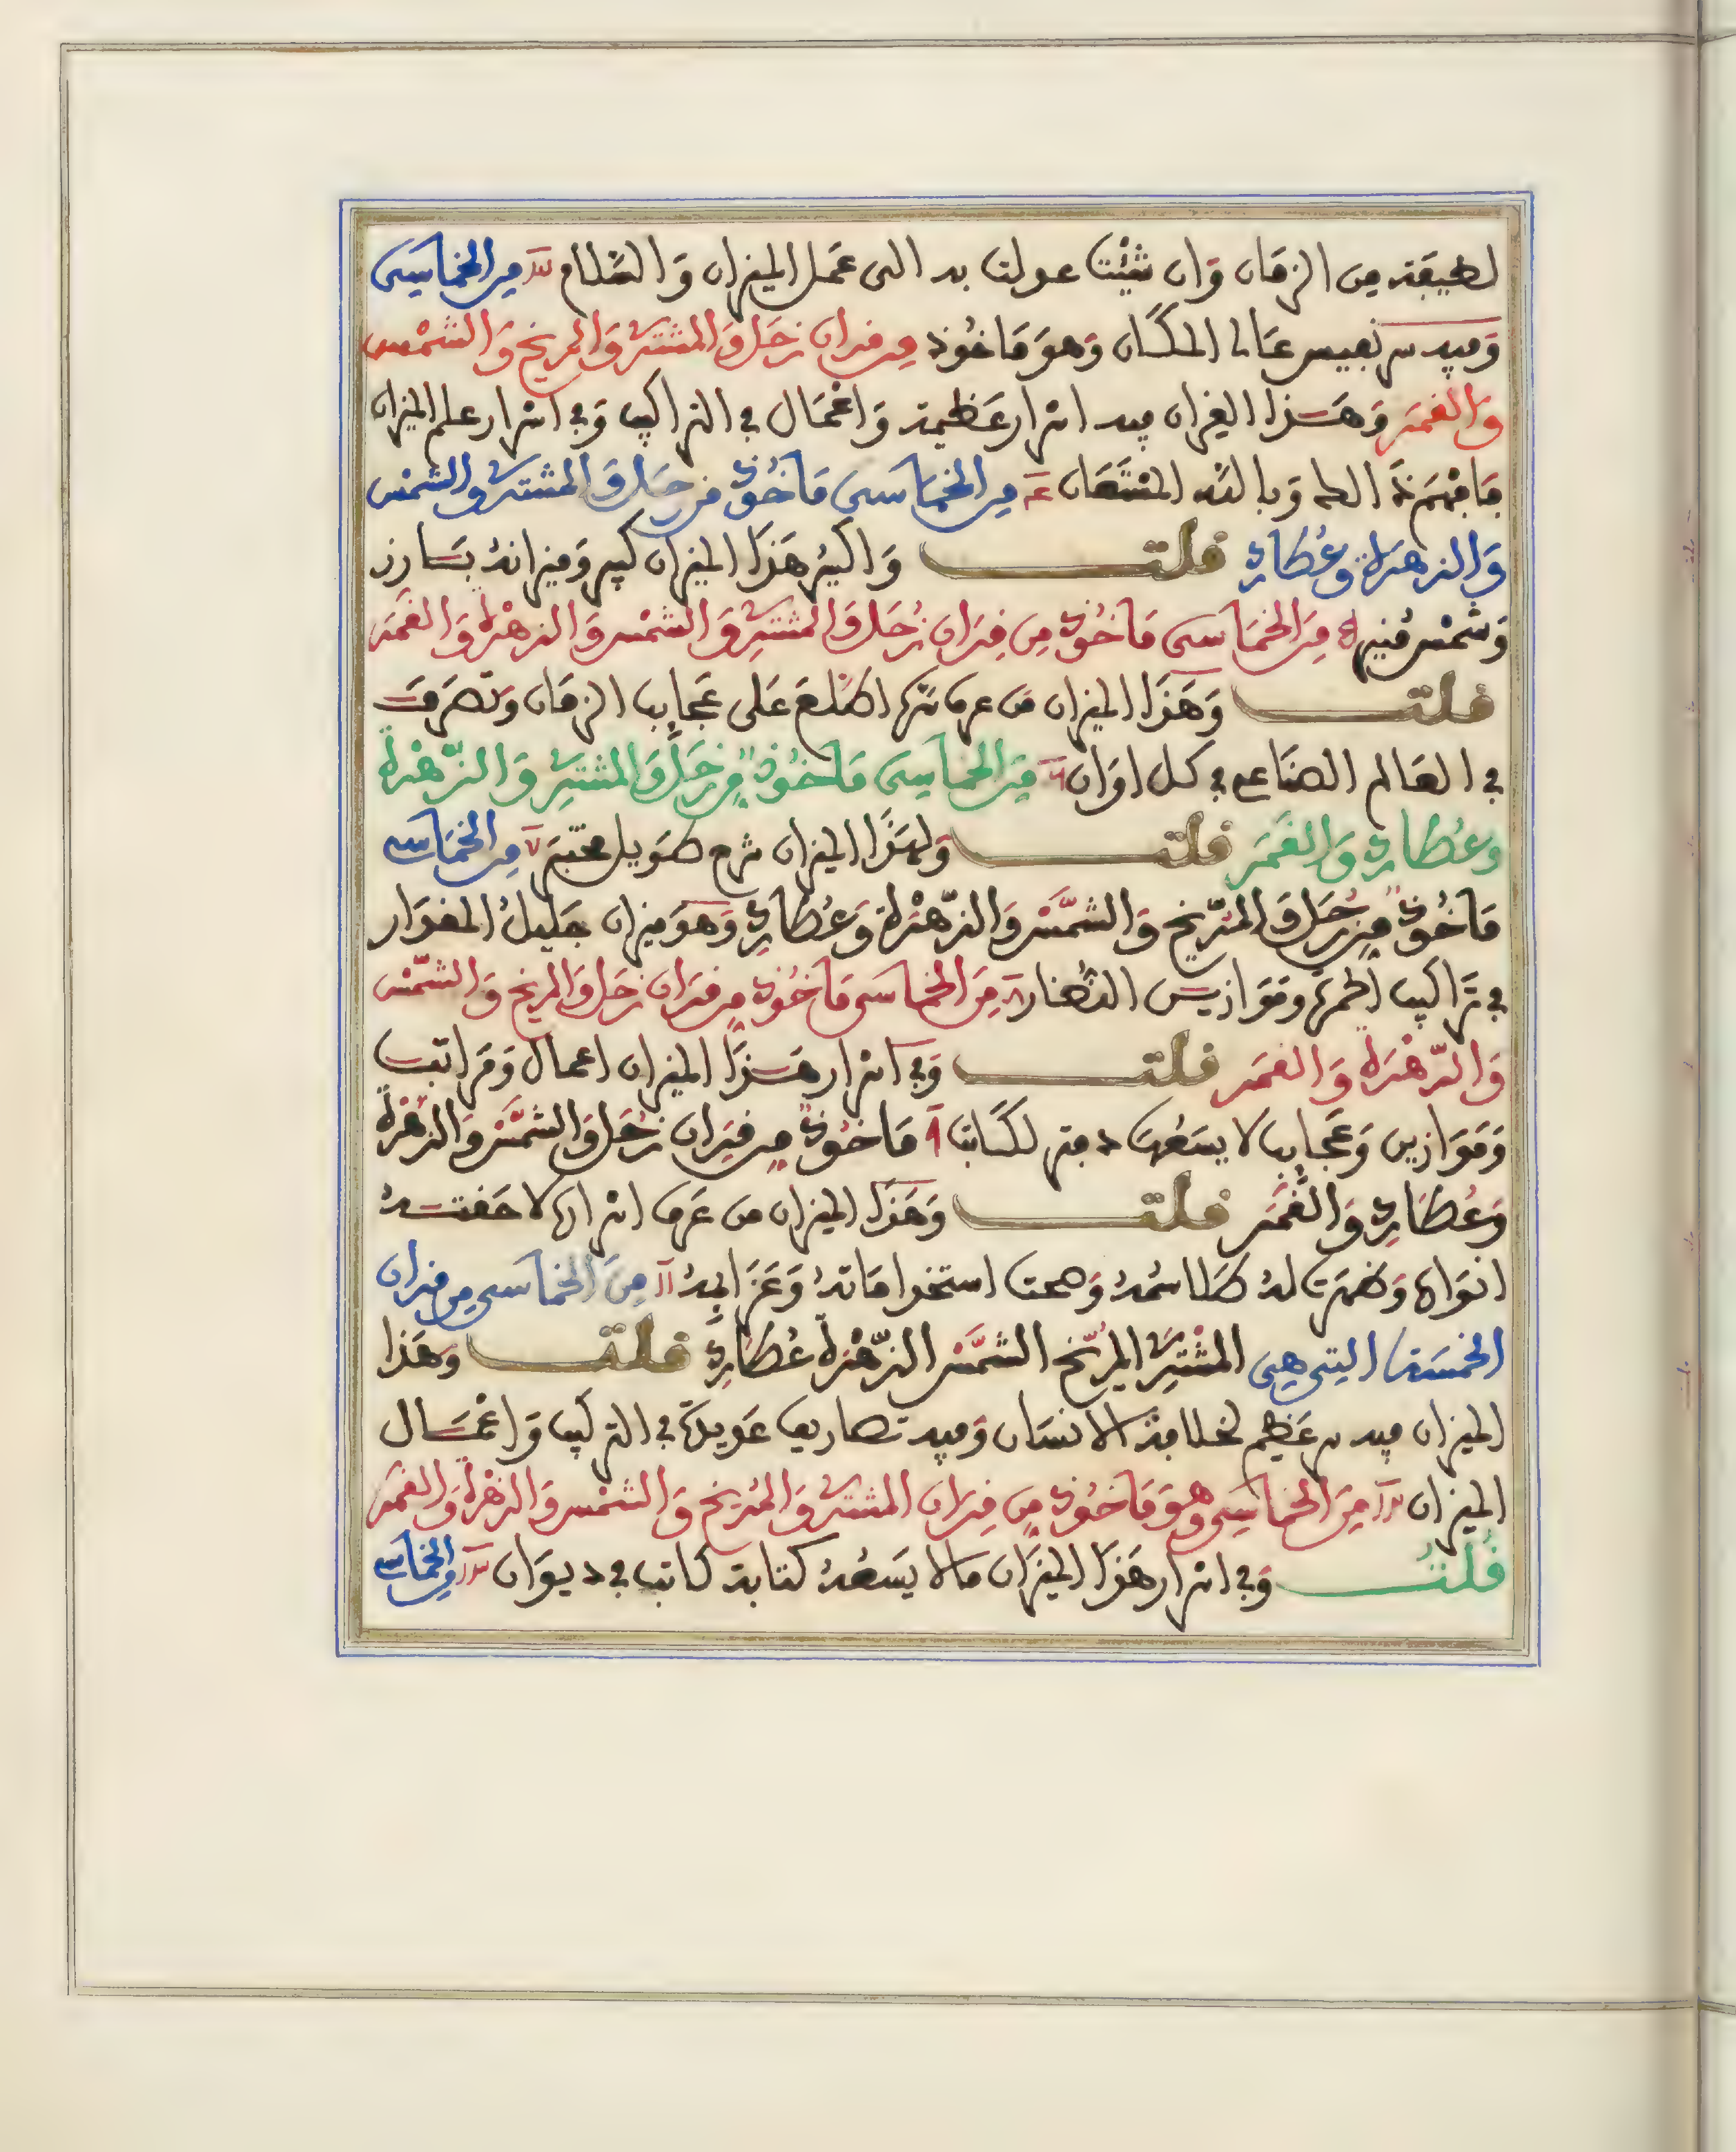 لطيفة من الزمان وان شئت عولت به الى عمل الميزان والسلام ٣ من الخماسى
وفيه سر نفيس عالى المكان وهو ماخوذ من قران زحل والمشترى والمريخ والشمس
والقمر وهذا القران فيه اسرار عظيمة واعمال في التراكيب وفي اسرار علم الميزان
فافهم ذلك وبالله المستعان ٤ من الخماسى ماخوذ من زحل والمشترى والشمس
والزهرة وعطارد قلت واكسير هذا الميزان كبير وميزانه بارز
وشمس منير ٥ من الخماسى ماخوذ من قران زحل والمشترى والشمس والزهرة والقمر
قلت وهذا الميزان من عرف سره اطلع على عجايب الزمان وتصرف
في العالم الصناعي في كل اوان ٦ من الخماسى ماخوذ من زحل والمشترى والزهرة
وعطارد والقمر قلت ولهذا الميزان شرح طويل مختبر ٧ من الخماسى
ماخوذ من زحل والمريخ والشمس والزهرة وعطارد وهو ميزان جليل المقدار
في تراكيب الحمرة وموازين النضار ٨ من الخماسى ماخوذ من قران زحل والمريخ والشمس
والزهرة والقمر قلت وفي اسرار هذا الميزان اعمال ومراتب
وموازين وعجايب لا يسعها دفتر لكاتب ٩ ماخوذ من قران زحل والشمس والزهرة
وعطارد والقمر قلت وهذا الميزان من عرف اسراره لاحفته
انواره وظهرت له طلاسمه وصحت استخداماته وعزايمه ١١ من الخماسى من قران
الخمسة التي هي المشترى المريخ الشمس الزهرة عطارد قلت وهذا
الميزان فيه سر عظيم لخلافة الانسان وفيه تصاريف عويلة في التركيب واعمال
الميزان ١٢ من الخماسى وهو ماخوذ من قران المشترى والمريخ والشمس والزهرة والقمر
قلت وفي اسرار هذا الميزان مالا يسعه كتابة كاتب في ديوان ١٣ من الخماسى